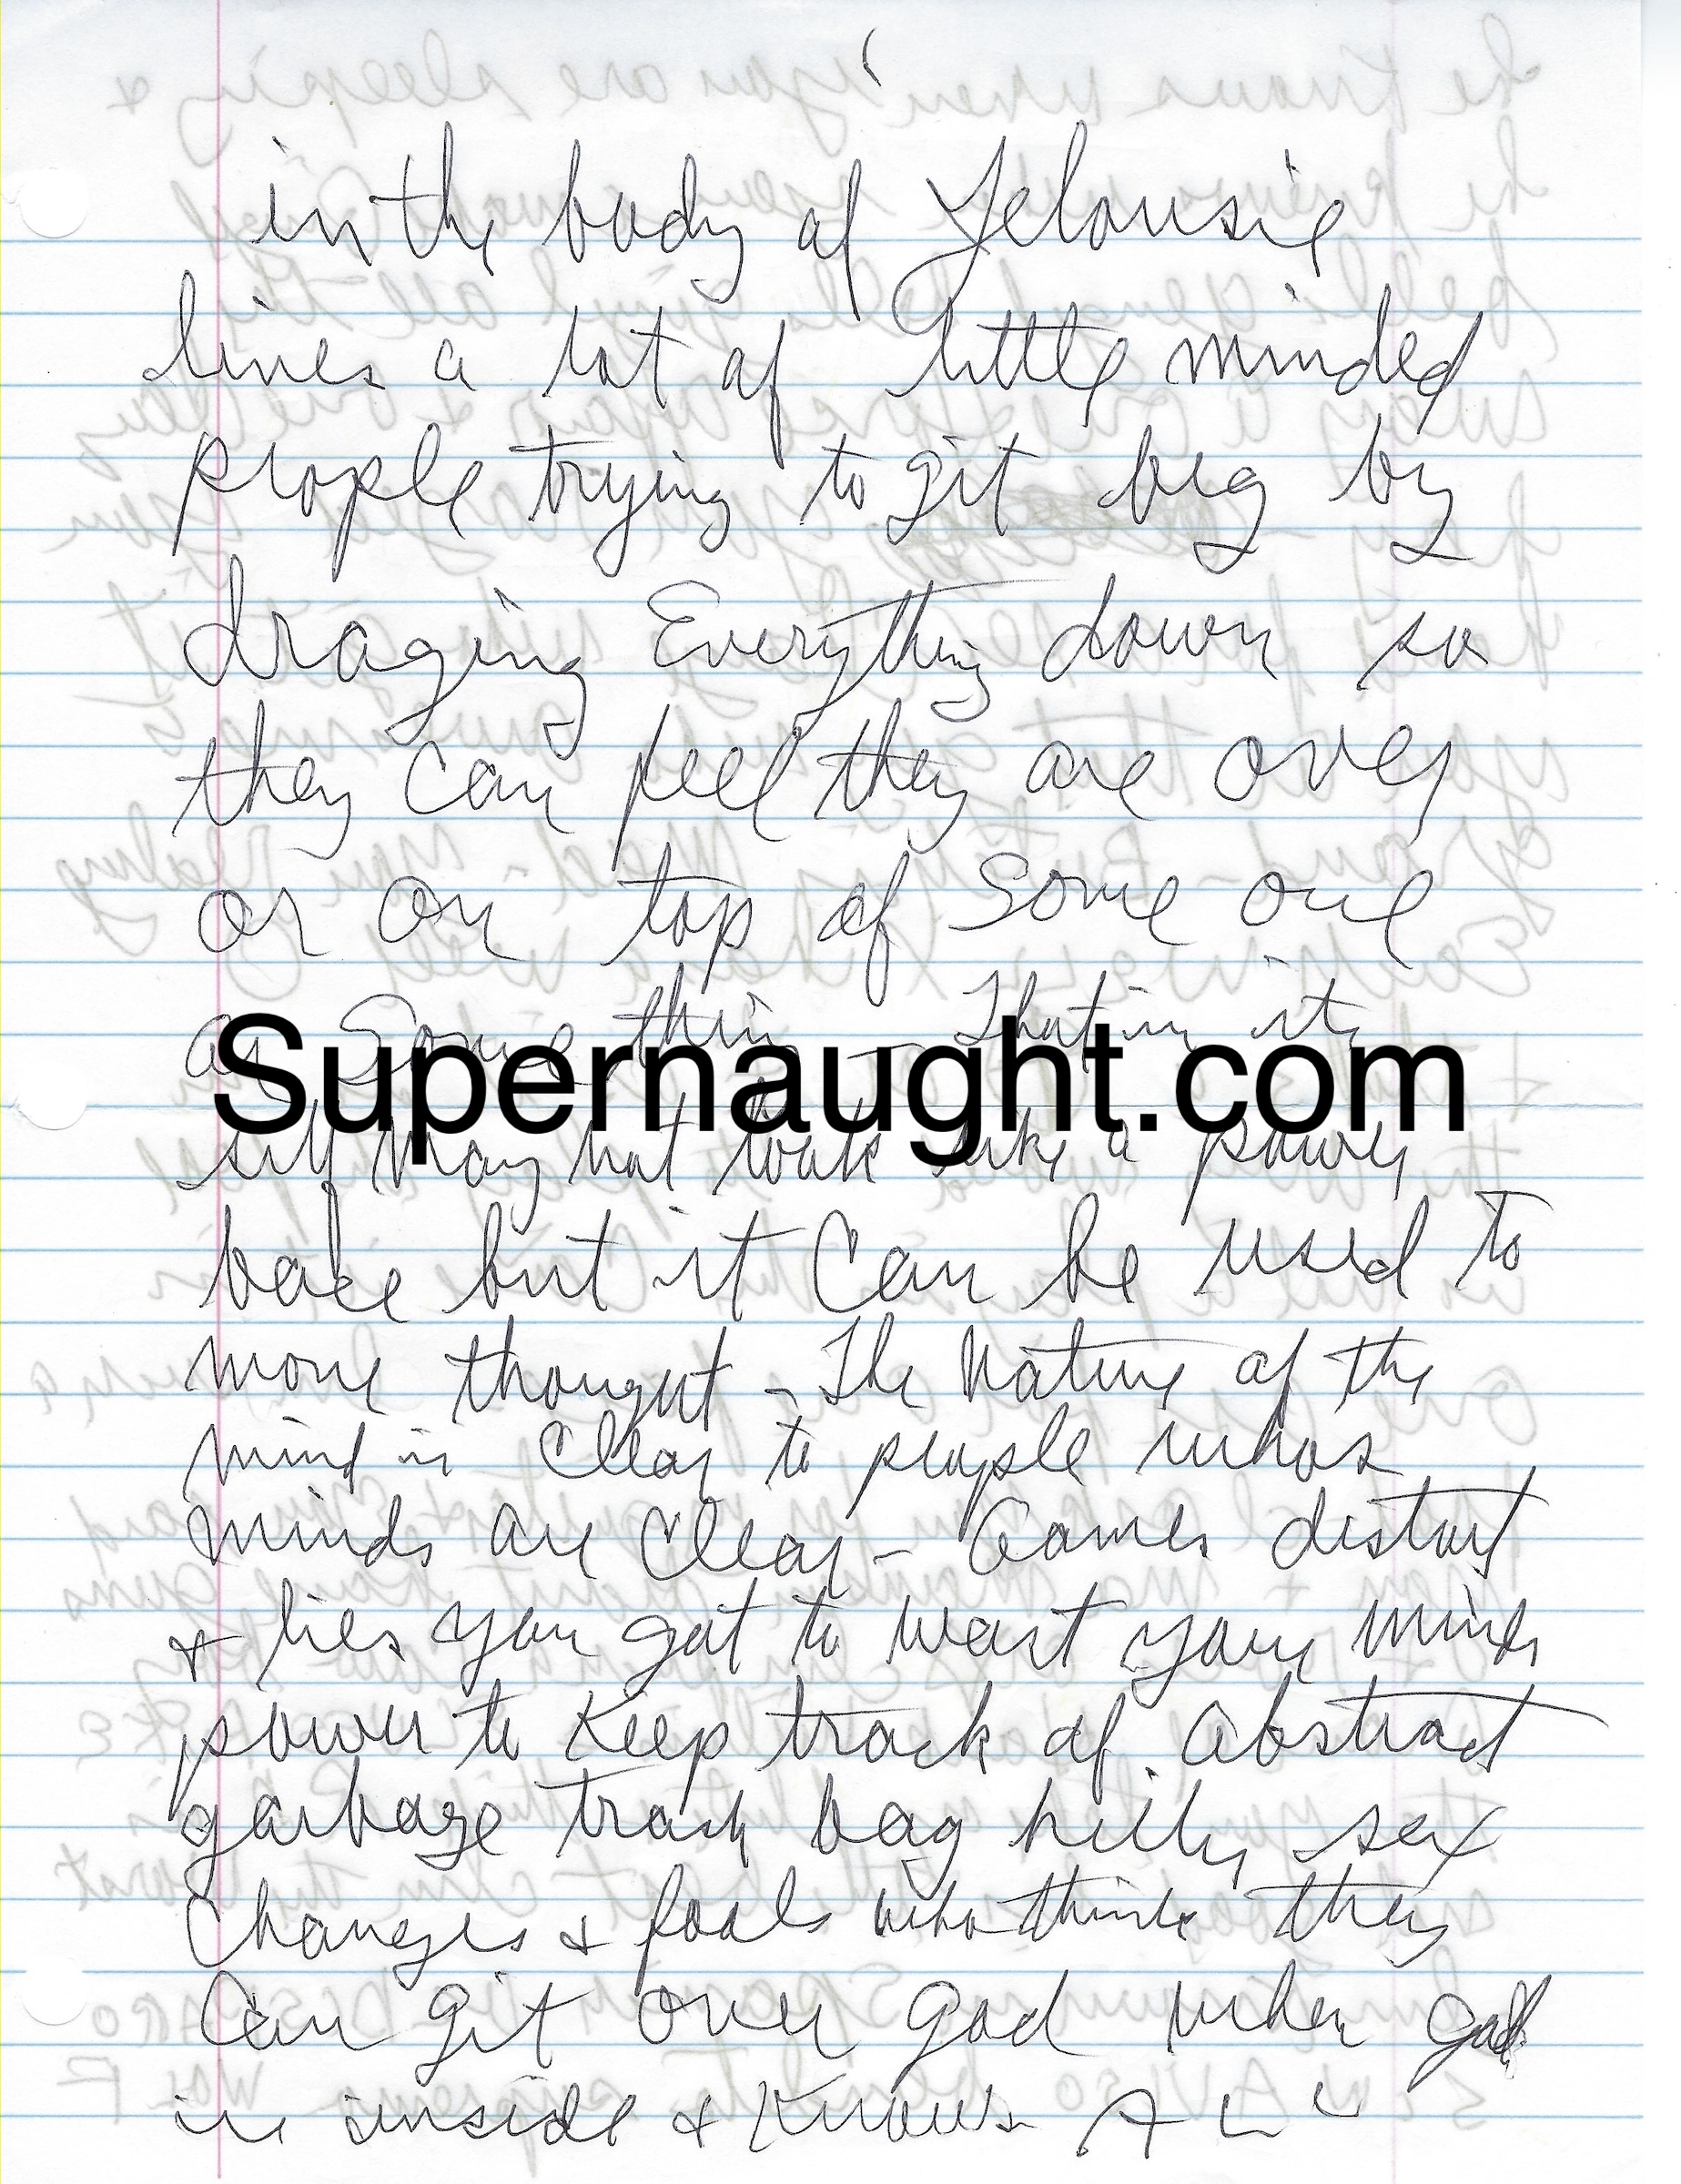 in the body of Jelousie
lives a lot of little minded
people trying to git big by
draging Everything down so
they can feel they are over
or on top of Some one
or Some thing - That in its
Supernaught.com
self may not look like a power
base but it Can be used to
move thought - The Nature of the
mind is Clear to people whos
minds are Clear - Games distort
& lies you got to waist your minds
power to Keep track of abstract
garbage trash bag hills, sex
Changes & fools who think they
Can git over god when god
is inside & Knows ALL